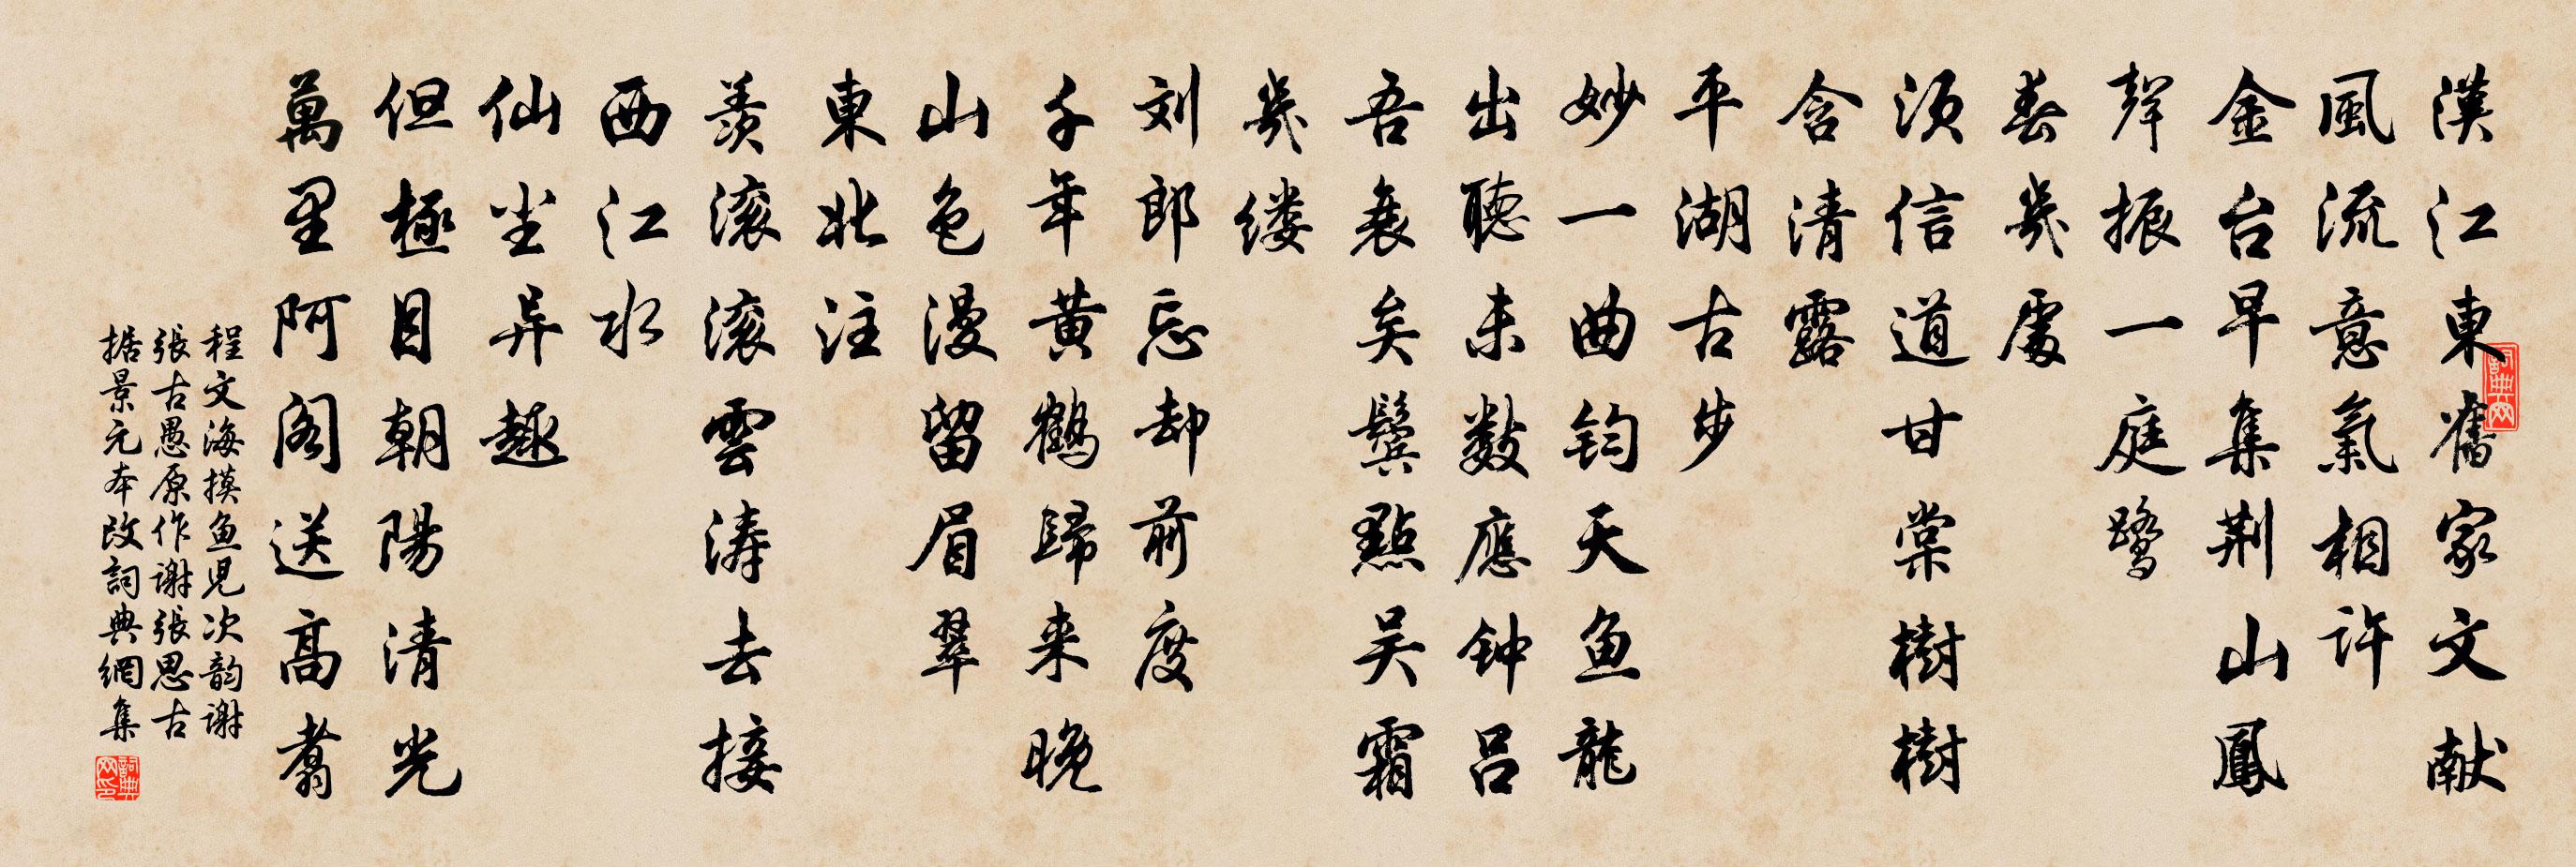 漢江東舊家文献
風流意氣相許
金台早集荆山鳳
聲振一庭鹭
春幾處
須信道甘棠樹樹
含清露
平湖古步
妙一曲钧天鱼龍
出聽未數應钟吕
吾衰矣鬓點吴霜
幾缕
刘郎忘却前度
千年黄鹤歸来晚
山色漫留眉翠
東北注
羡滚滚雲涛去接
西江水
仙坐异趣
但極目朝陽清光
萬里阿阁送高翥
程文海摸鱼兒次韵谢
張古愚原作谢張思古
据景元本改詞典網集
詞典网
詞典网印